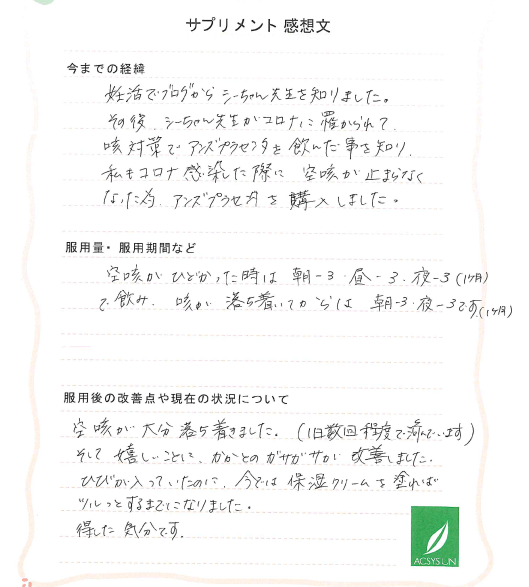 サプリメント 感想文
今までの経緯
妊活でブログからシーちゃん先生を知りました。
その後、シーちゃん先生がコロナに罹かられて、
咳対策でアンズプラセンタを飲んだ事を知り、
私もコロナ感染した際に 空咳が止まらなく
なった為、アンズプラセンタを購入しました。
服用量・服用期間など
空咳がひどかった時は 朝-3・昼-3・夜-3(1ヶ月)
で飲み、咳が落ち着いてからは 朝-3・夜-3です。(1ヶ月)
服用後の改善点や現在の状況について
空咳が大分落ち着きました。(1日数回程度で済んでいます)
そして嬉しいことに、かかとのガサガサが改善しました。
ひびが入っていたのに、今では保湿クリームを塗れば
ツルっとするまでになりました。
得した気分です。
ACSYSUN